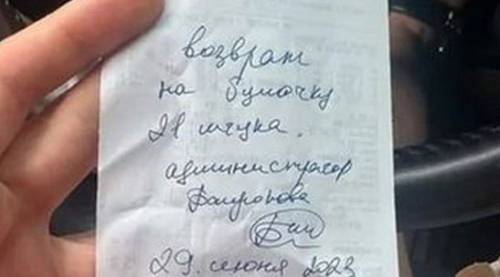 возврат
на булочку
21 штука.
администратор
29. июня 2023